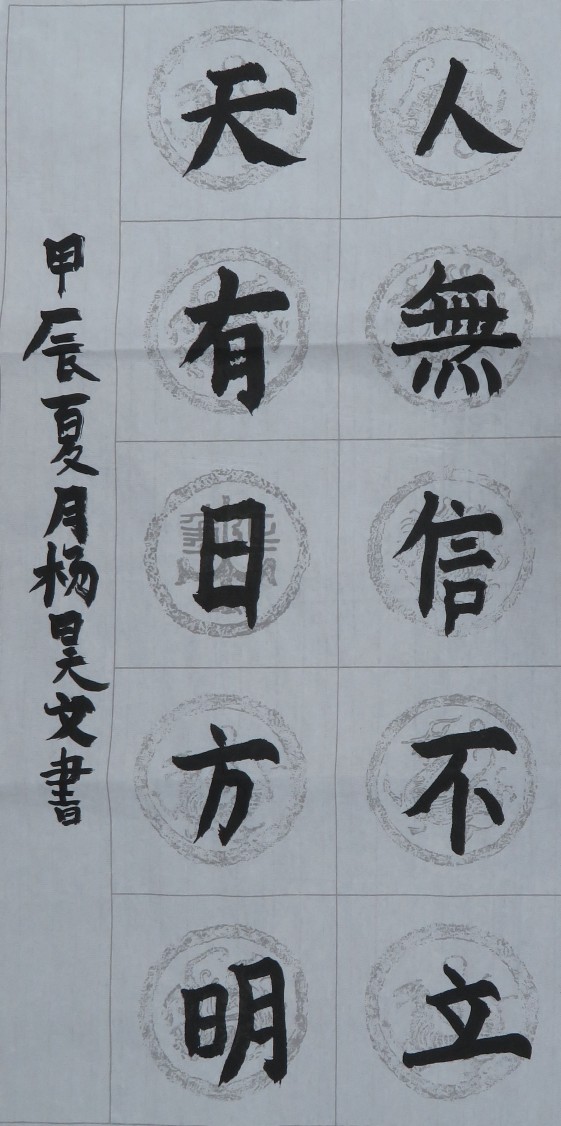 人無信不立
天有日方明
甲辰夏月杨昊文書